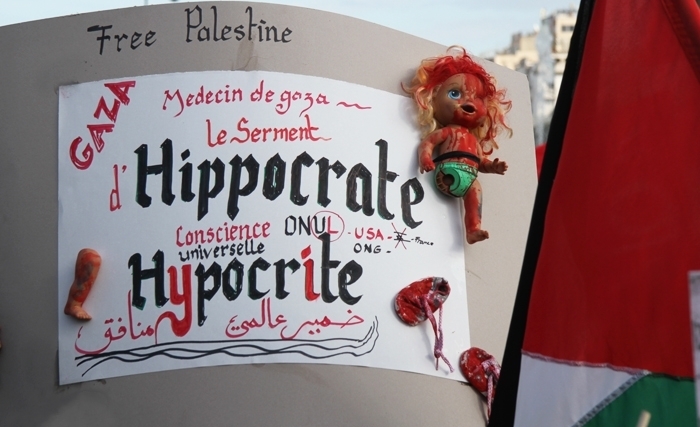 Free Palestine
GAZA
Medecin de gaza
le Serment
d'Hippocrate
Conscience universelle
ONUL - USA - France
ONG -
Hypocrite
ضمير عالمي منافق